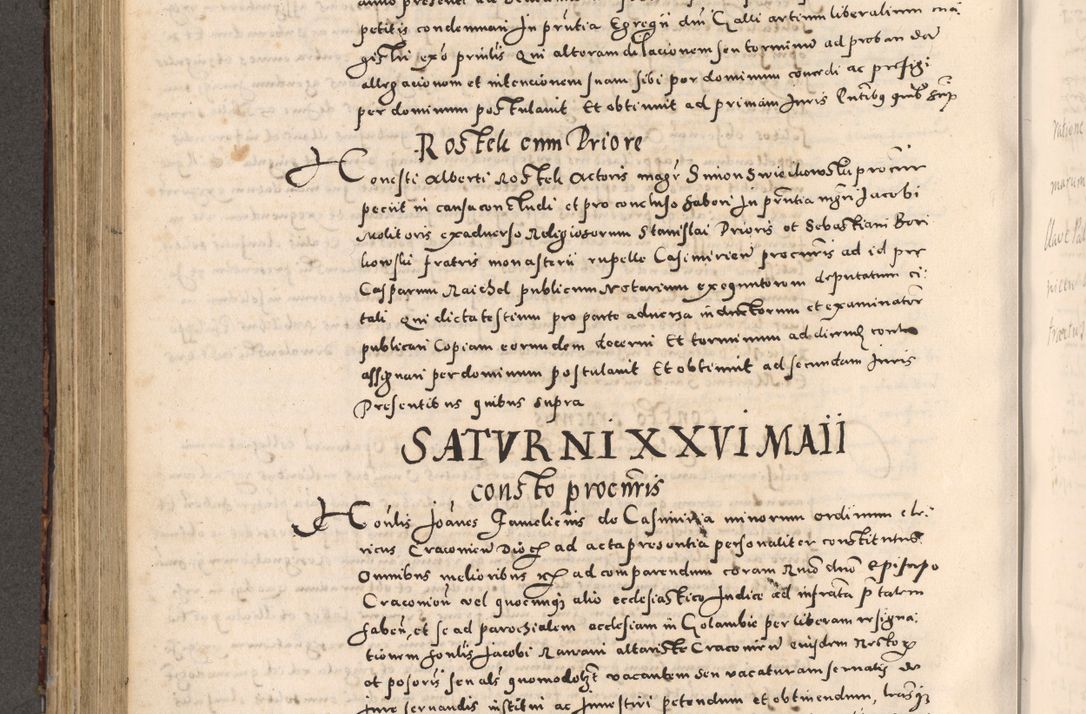 petitis condemnari In pñtia Egregii dni Galli artium liberalium ma
gistri ex o prioris Qui alteram dilacionem seu terminum ad proban da
allegacionem et intencionem suam sibi per dominum concedi ac prefigi
per dominum postulavit Et obtinuit ad primam Juris Pñtibq quib supra
Rostek cum Priore
Honesti Alberti Rostek Actoris magr Simon Swiechowski procurr
peciit in causa concludi et pro concluso haberi In pñtia mgri Jacobi
Molitoris ex adverso Religiosorum Stanislai Prioris et Sebastiani Bori
kowski fratris monasterii rupelle Casimirien procuris ad id per
Casparum Raichel publicum Notarium exequutorem deputatum ci:
tati Qui dicta testium pro parte adversa inductorum et examinator
publicari Copiam eorumdem decerni Et terminum ad dicendum contra
assignari per dominum postulavit Et obtinuit ad secundam Juris
Presentibus quibus supra
SATVRNI XXVI MAII
Consto procuris
Honlis Joānes Gameliceus de Casimiria minorum ordinum cle:
ricus Craconien Dioc ad acta presentia personaliter constitutus
Omnibus melioribus ad comparendum coram Rmo dno Episcopo
Craconien vel quocunq alio ecclesiastico Judice ad infrascripta ptatem
haben et se ad parochialem ecclesiam in Golambie per liberam resigna
tionem honlis Jacobi Rawani altariste Craconien eiusdem Rectoris
et posoris seu als quomodolibet vacantem seu vacaturam servatis de
Jure servandis institui ac Investiri petendum et obtinendum,